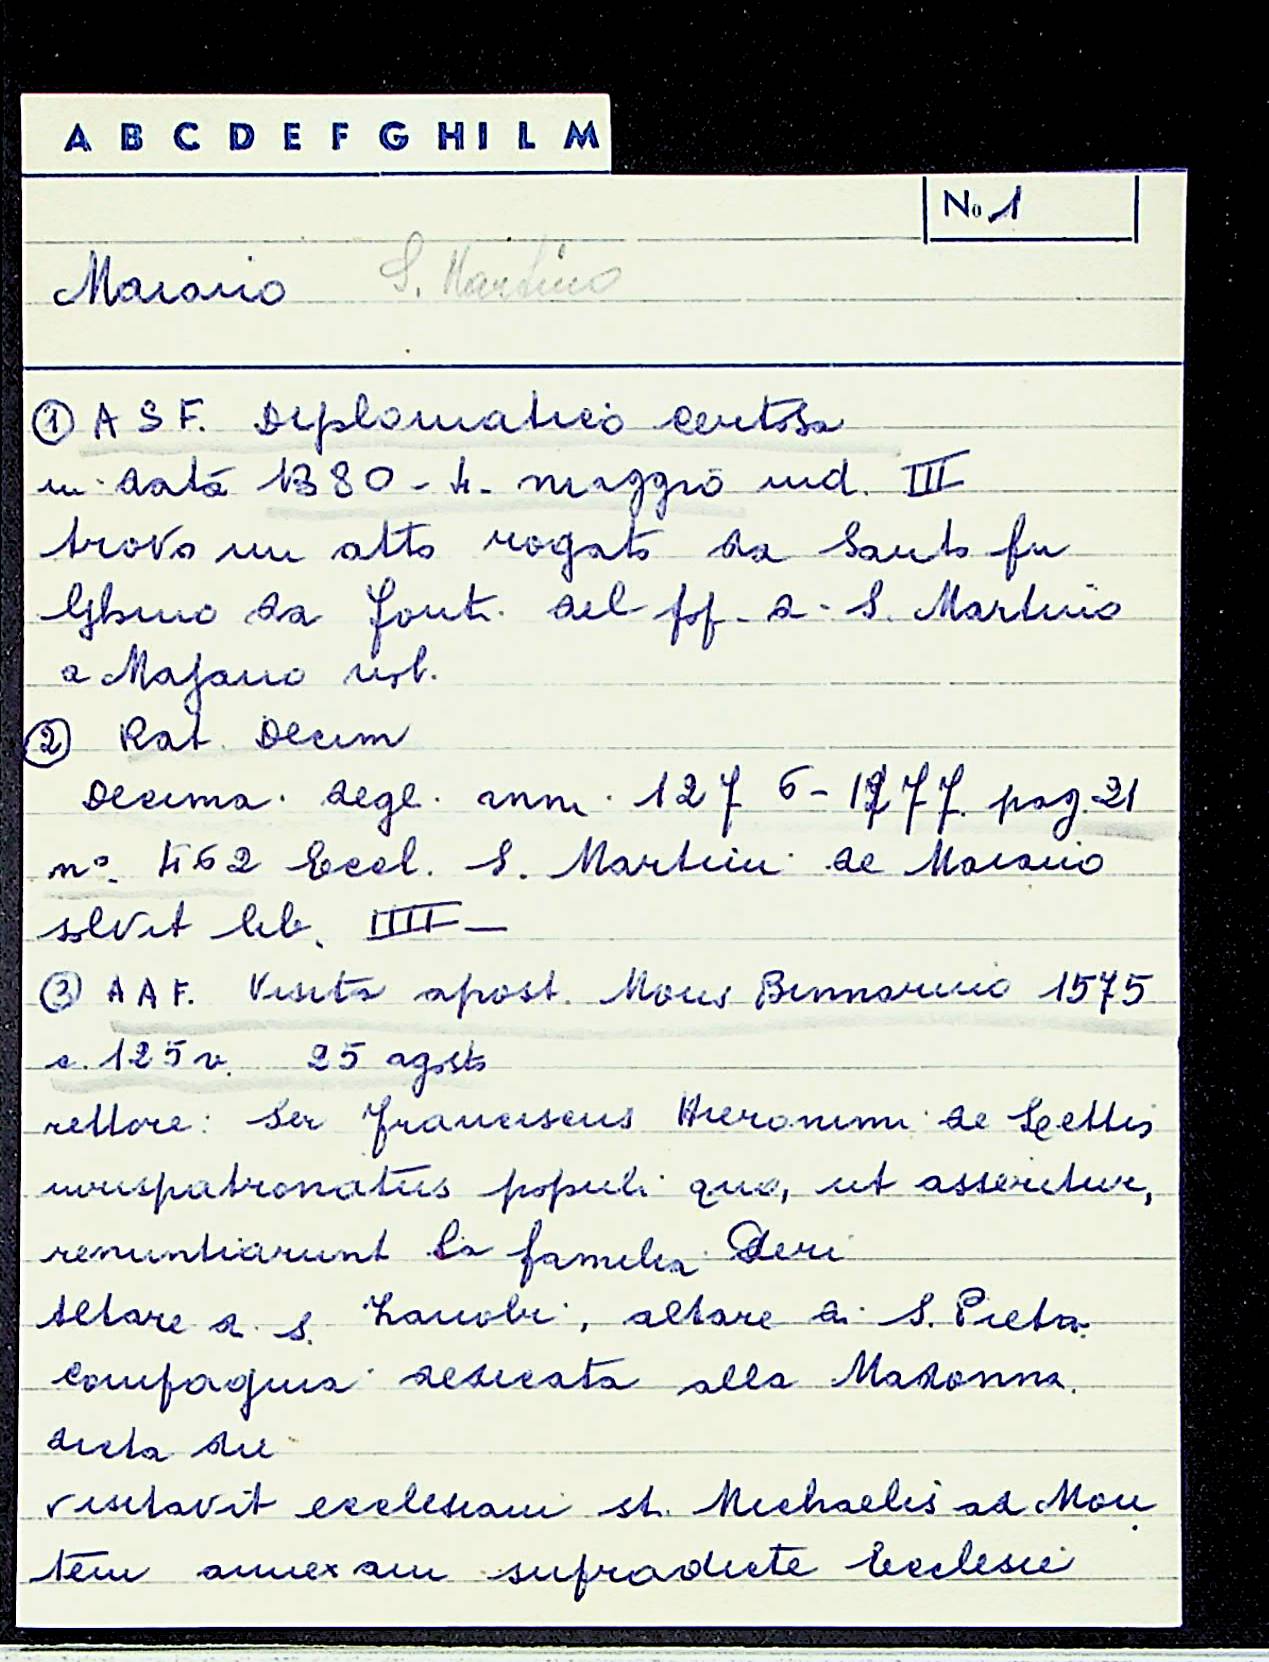 A B C D E F G H I L M
No 1
Maiano S. Martino
① A S F. Diplomatico Certosa
in data 1380 - 4 - maggio ind. III
trovo un atto rogato da Santo fu
Ghino da del pop. di S. Martino
a Majano
② Rat. Decim
Decima degl. anni 1276 - 1277. pag. 21
n°. 462 Eccl. S. Martini de Maiano
solvit lib. IIII —
③ A A F. Visita apost. Mons Binnarino 1575
c. 125 v. 25 agosto
rettore: Ser Franciscus Hieronimi de
iurispatronatus populi quo, ut asseritur,
renuntiarunt la familia
Altare d. S. Zanobi, altare di S. Pietà
compagnia dedicata alla Madonna.
dicta die
visitavit ecclesiam st. Michaelis ad Mon
tem annexam supradicte Ecclesie